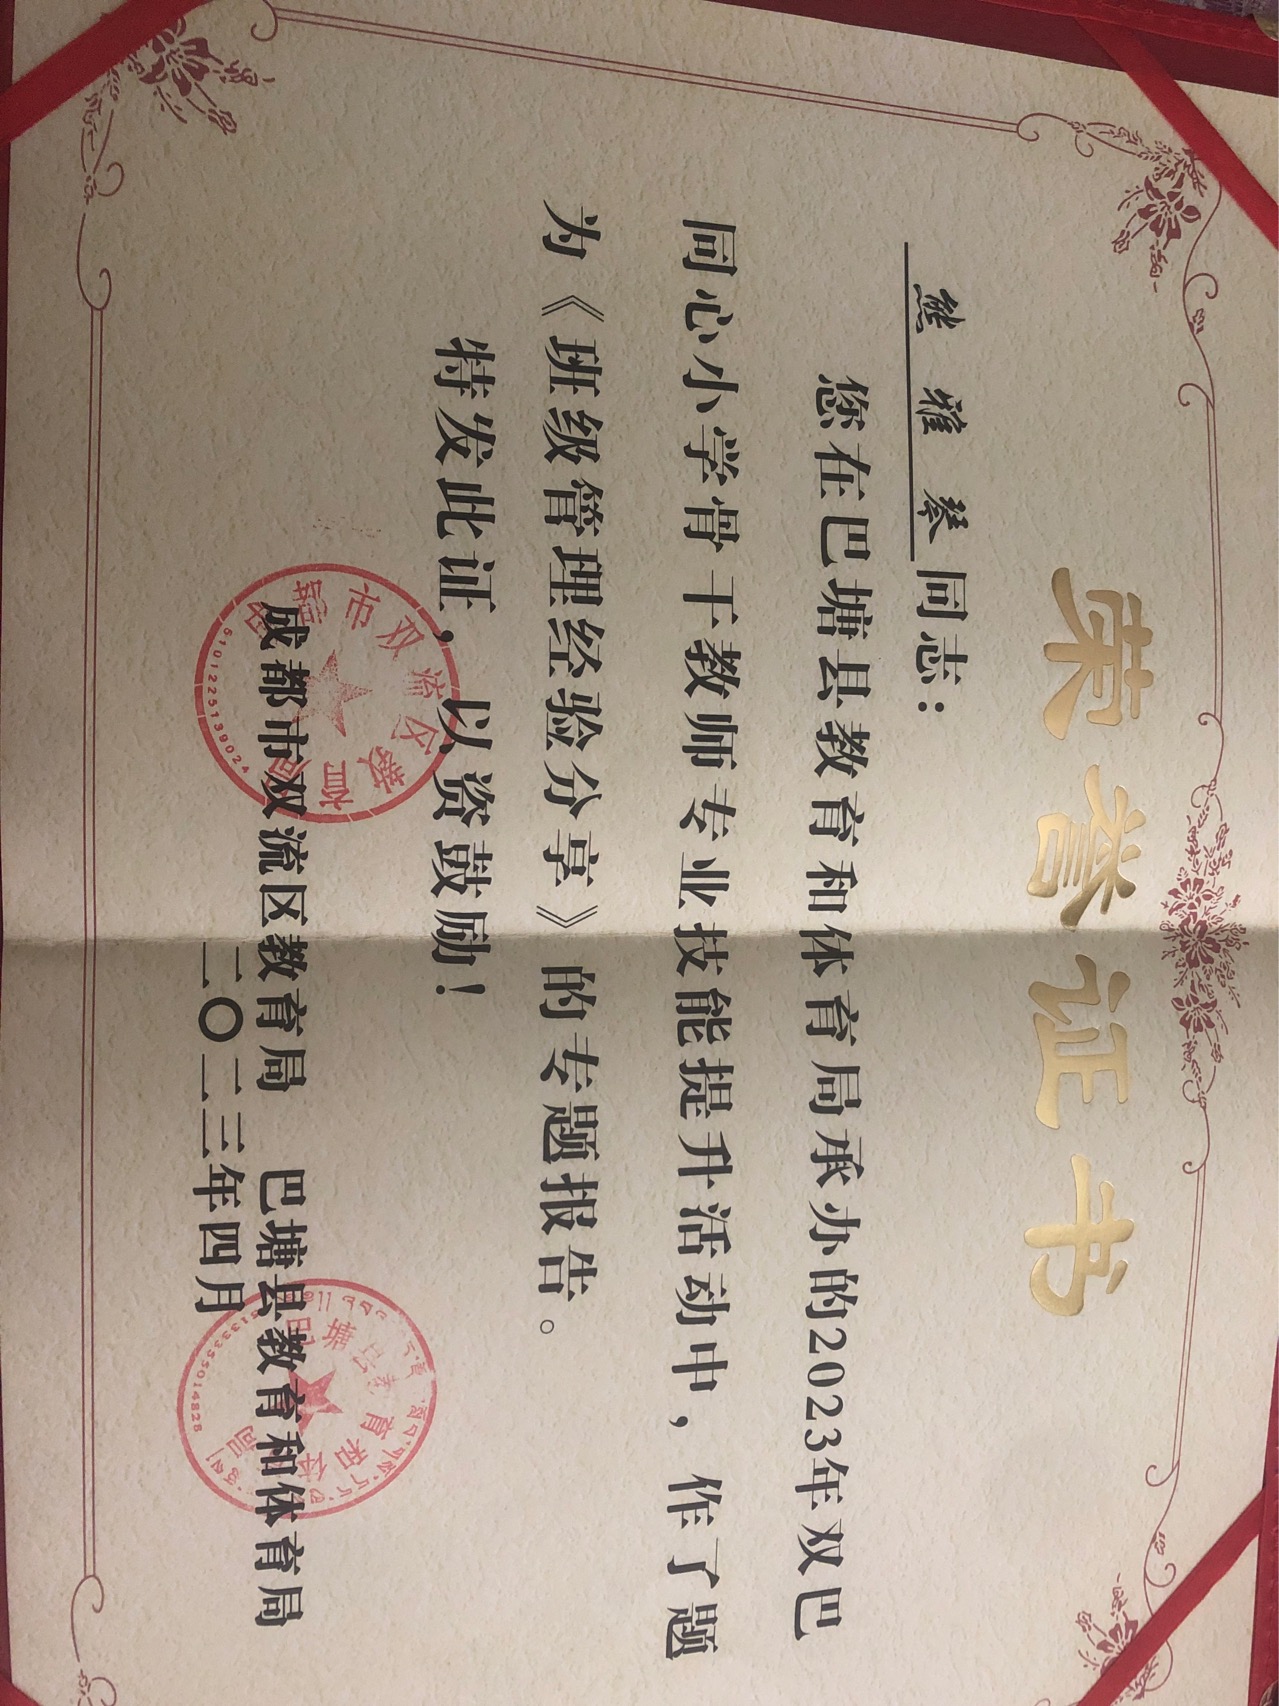 荣誉证书
熊雅琴同志：
您在巴塘县教育和体育局承办的2023年双巴
同心小学骨干教师专业技能提升活动中，作了题
为《班级管理经验分享》的专题报告。
特发此证，以资鼓励！
成都市双流区教育局 巴塘县教育和体育局
二〇二三年四月
成都市双流区教育局
5101225139024
巴塘县教育和体育局